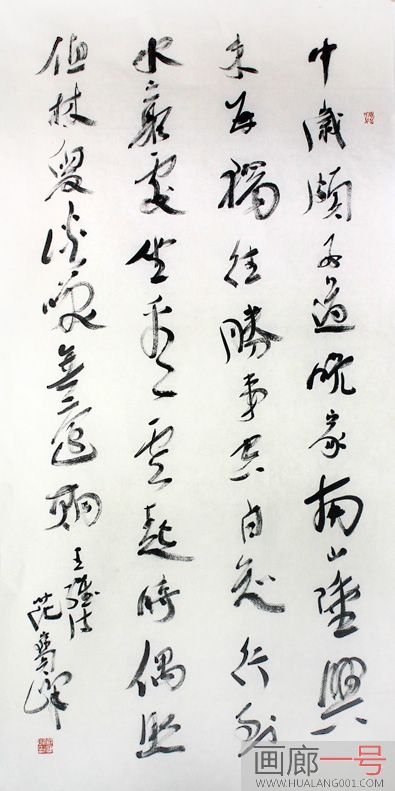 中歲頗好道晚家南山陲興
来每獨往勝事空自知行到
水窮處坐看雲起時偶然
值林叟談笑無還期
王維詩
范
画廊一号
WWW.HUALANG001.COM